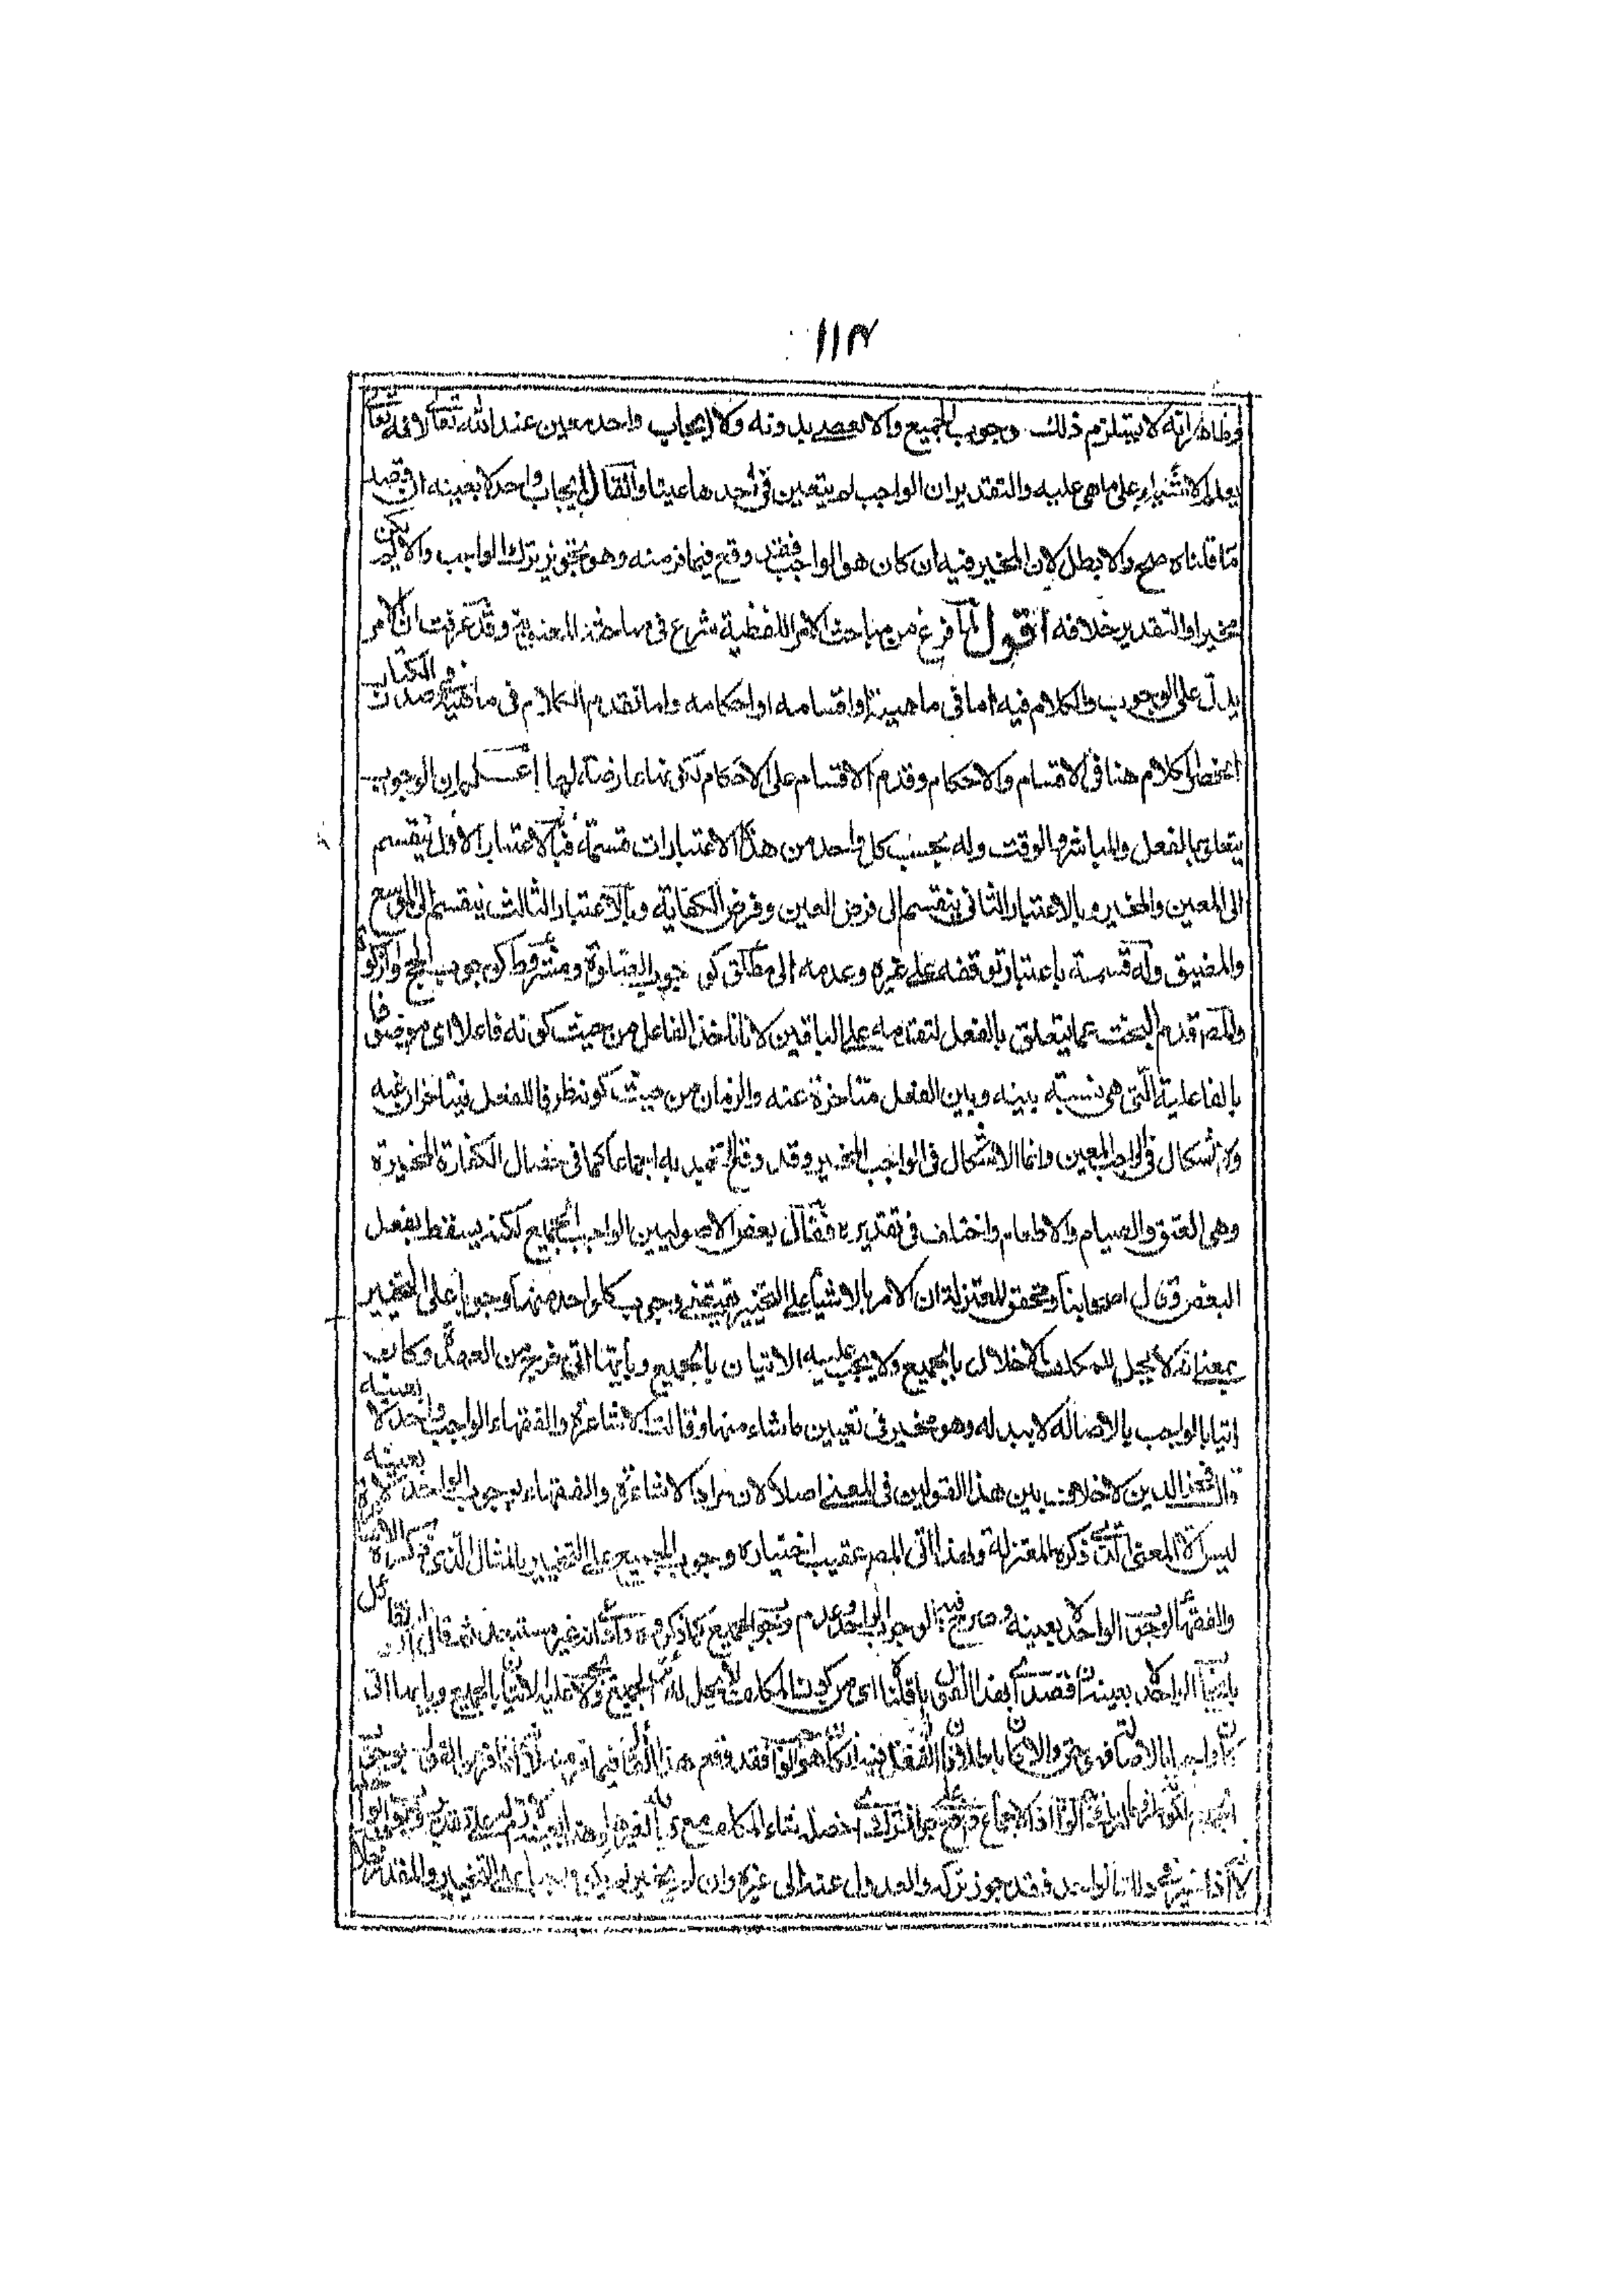 ١١٣
فظاهر انه لا يستلزم ذلك وجوب الجميع والا لعصى بدونه ولا لايجاب واحد معين عند الله تعالى لانه تعالى
يعلم الاشياء على ما هى عليه والتقدير ان الواجب لم يتعين فى احدها عينا والقائل بايجاب واحد لا بعينه ان قصد
ما قلناه صح والا بطل لان المخير فيه ان كان هو الواجب فقد وقع فيما فر منه وهو تجويز ترك الواجب والا لم يكن
مخيرا والتقدير خلافه اقول لما فرغ من مباحث الامر اللفظية شرع فى مباحثه المعنوية وقد عرفت ان الامر
يدل على الوجوب والكلام فيه اما فى ماهيته او اقسامه او احكامه ولما تقدم الكلام فى ماهيته فى صدر الكتاب
انحصر الكلام هنا فى الاقسام والاحكام وقدم الاقسام على الاحكام لكونها عارضة لها اعلم ان الوجوب
يتعلق بالفعل والمباشر والوقت وله بحسب كل واحد من هذه الاعتبارات قسمة فبالاعتبار الاول ينقسم
الى المعين والمخير وبالاعتبار الثانى ينقسم الى فرض العين وفرض الكفاية وبالاعتبار الثالث ينقسم الى الموسع
والمضيق وله قسمة باعتبار توقفه على غيره وعدمه الى مطلق كوجوب الصلوة ومشروط كوجوب الحج والزكوة
والمصر قدم البحث عما يتعلق بالفعل لتقدمه على الباقين لانا ناخذ الفاعل من حيث كونه فاعلا اى موصوفا
بالفاعلية التى هى نسبة بينه وبين الفعل متاخرة عنه والزمان من حيث كونه ظرفا للفعل فيتاخران عنه
ولا اشكال فى الواجب المعين وانما الاشكال فى الواجب المخير وقد وقع التعبد به اجماعا كما فى خصال الكفارة المخيرة
وهى العتق والصيام والاطعام واختلف فى تقديره فقال بعض الاصوليين الواجب الجميع لكنه يسقط بفعل
البعض وقال اصحابنا ومحققو المعتزلة ان الامر بالاشياء على التخيير يقتضى وجوب كل واحد منها وجوبا على التخيير
بمعنى انه لا يحل للمكلف الاخلال بالجميع ولا يجب عليه الاتيان بالجميع وبايتها اتى خرج من العهدة وكان
اتيا بالواجب بالاصالة لا ببدله وهو مخير فى تعيين ما شاء منها وقالت الاشاعرة والفقهاء الواجب واحد لا بعينه
قال فخر الدين لا خلاف بين هذا القولين فى المعنى اصلا لان مراد الاشاعرة والفقهاء بوجوب الواحد لا بعينه
ليس الا المعنى الذى ذكره المعتزلة ولهذا اتى المصر عقيب اختياره وجوب الجميع على التخيير بالمثال الذى ذكره الاشاعرة
والفقهاء لوجوب الواحد لا بعينه
بايجاب الواحد لا بعينه ان قصد بهذا القول ما قلناه اى من كون المكلف لا يحل له
لانه اذا خير فى ذلك الواحد فقد جوز تركه والعدول عنه الى غيره وان لم يخير لم يكن واجبا على التخيير والمقدر خلافه